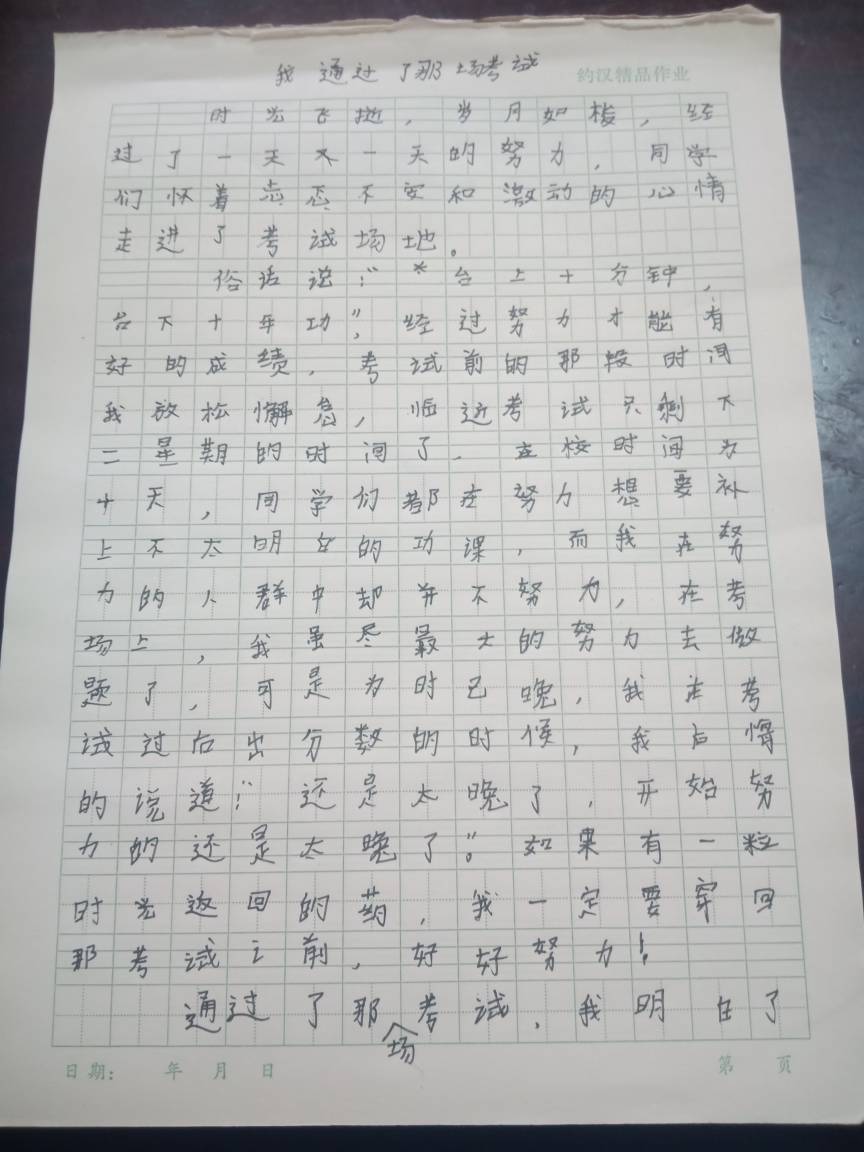 我通过了那场考试
约汉精品作业
时光飞逝，岁月如梭，经
过了一天又一天的努力，同学
们怀着忐忑不安和激动的心情
走进了考试场地。
俗话说：“台上十分钟，
台下十年功”，经过努力才能有
好的成绩，考试前的那段时间
我放松懈怠，临近考试只剩下
二星期的时间了，在校时间为
十天，同学们都在努力想要补
上不太明白的功课，而我在努
力的人群中却并不努力，在考
场上，我虽尽最大的努力去做
题了，可是为时已晚，我在考
试过后出分数的时候，我后悔
的说道：“还是太晚了，开始努
力的还是太晚了”。如果有一粒
时光返回的药，我一定要穿回
那考试之前，好好努力！
通过了那场考试，我明白了
日期： 年 月 日 第 页